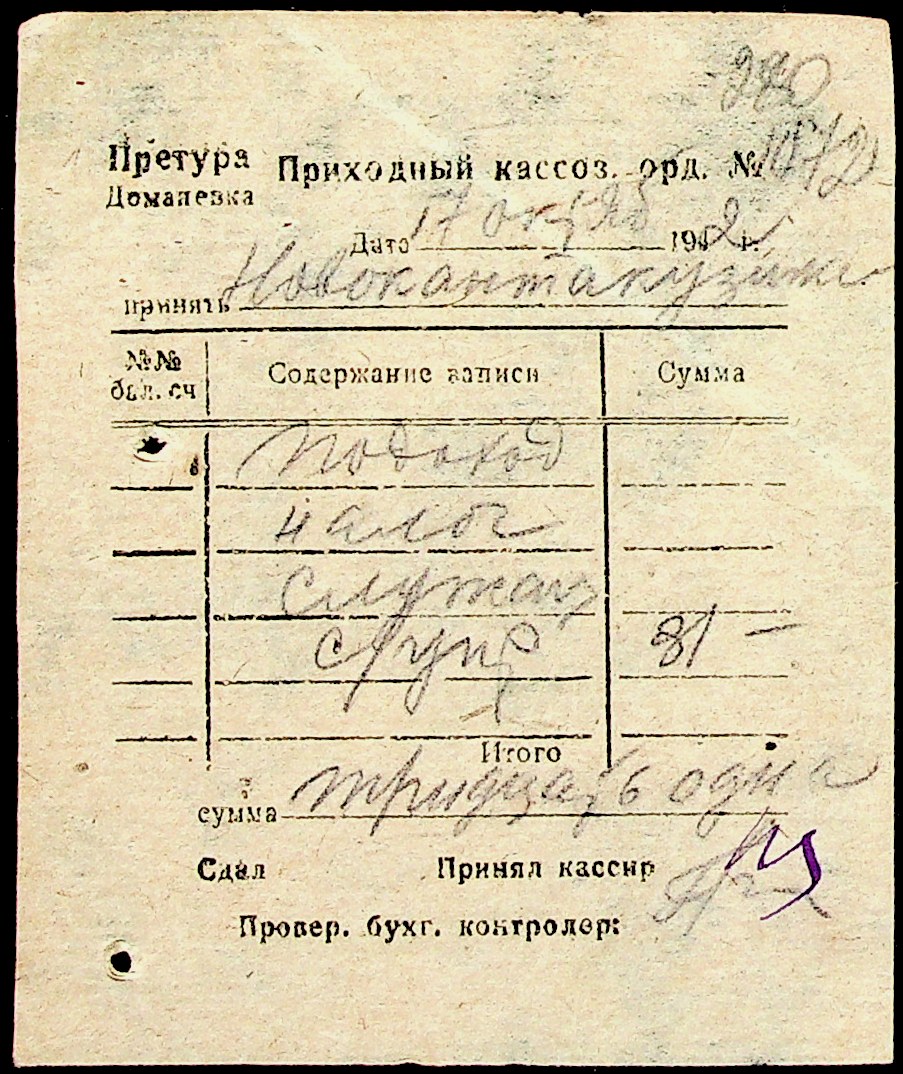 280
Претура Приходный кассов. орд. № 1672
Доманевка
Дата 17 октяб 1942 г.
принять Новокантакузинка
№№ бал. сч Содержание записи Сумма
Подоход
налог
служащ
с/упр 31 —
Итого
сумма тридцать одна
Сдал Принял кассир
Провер. бухг. контролер: